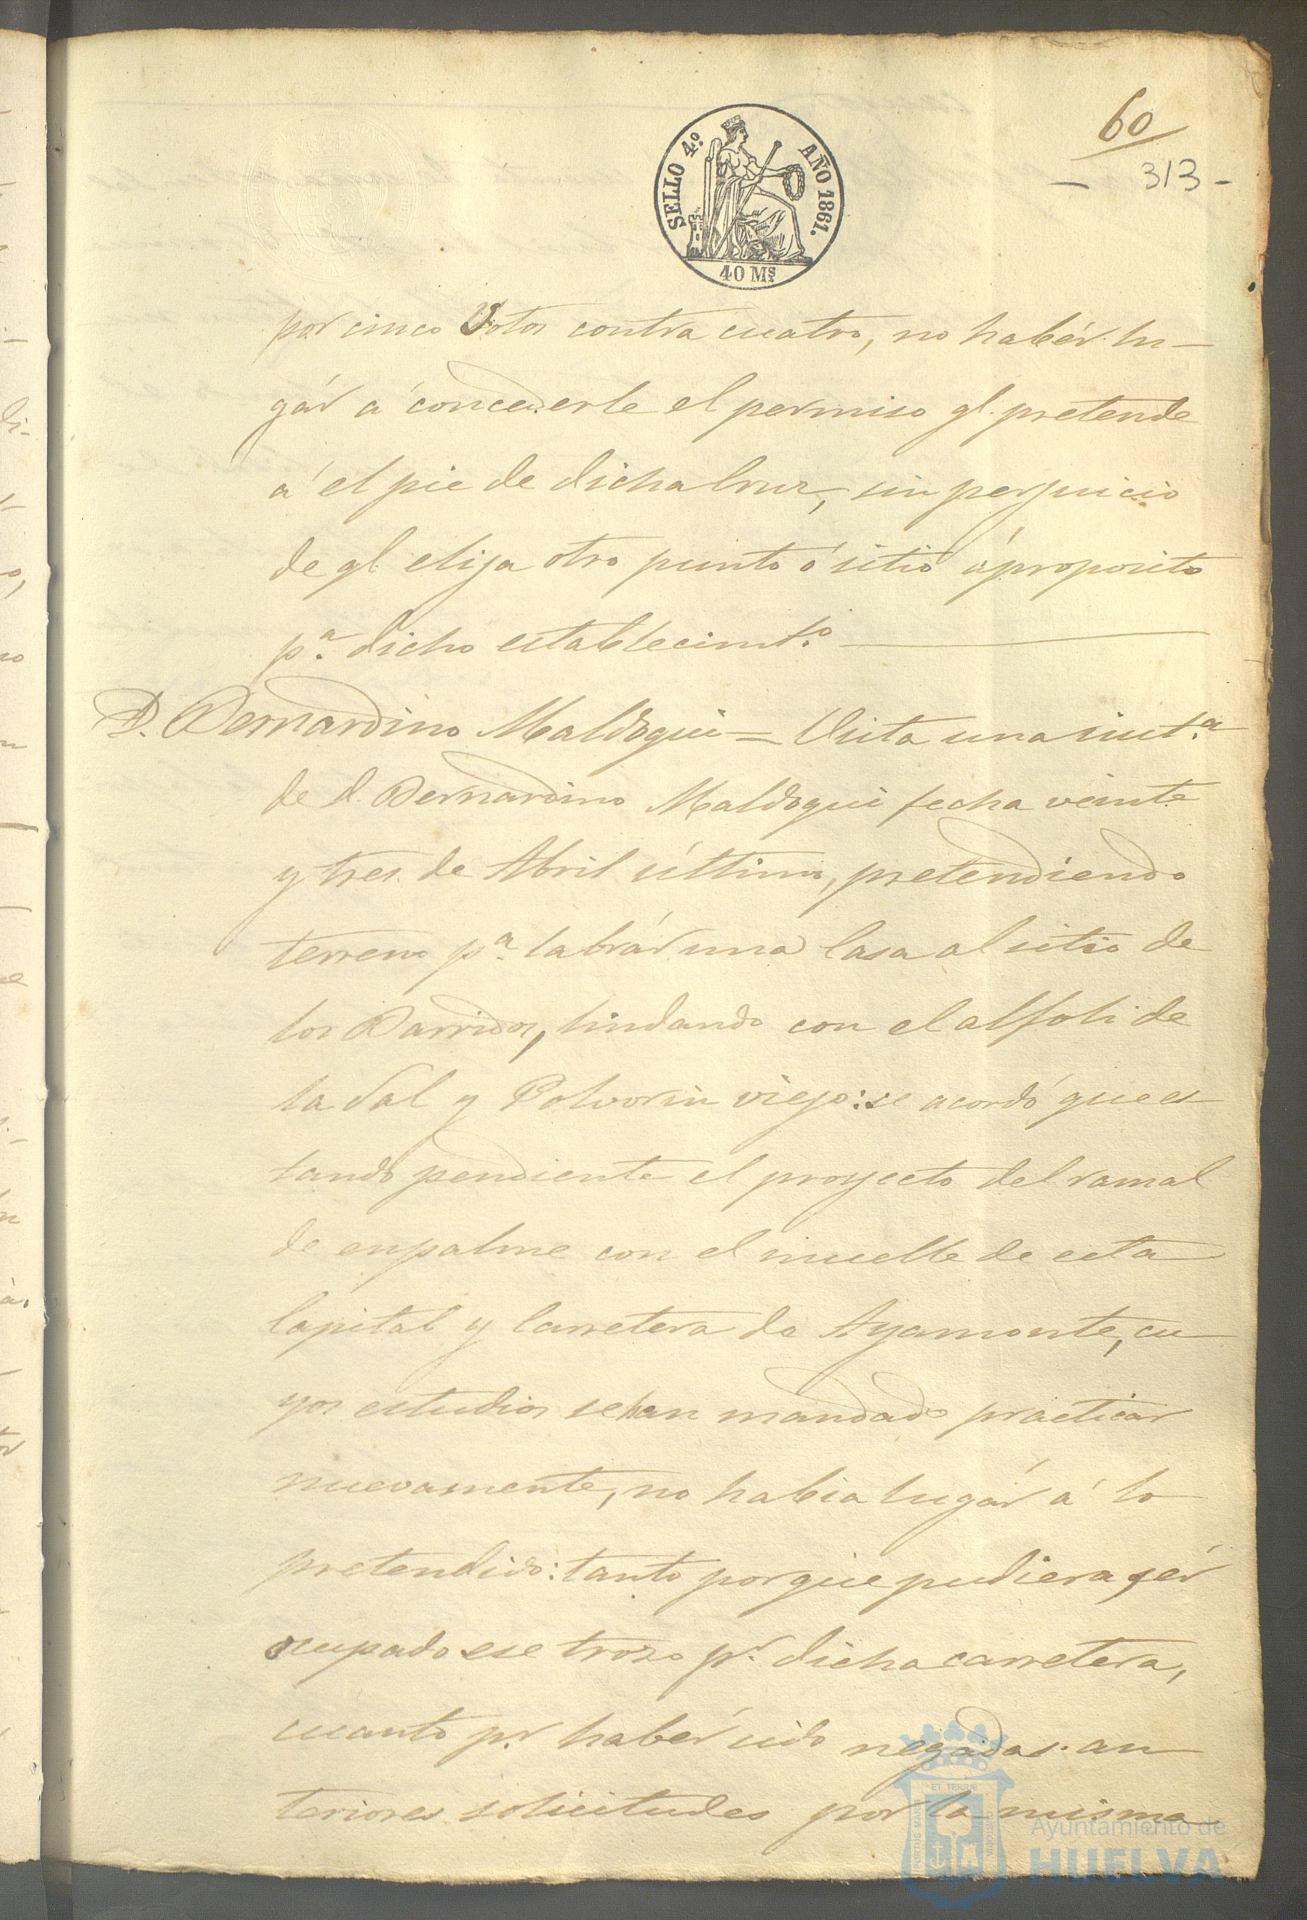 60
- 313 -
SELLO 4.º AÑO 1861.
40 Ms.
por cinco Votos contra cuatro, no habér lu-
gár á concederle el permiso ql. pretende
á el pie de dicha Cruz, sin perjuicio
de ql. elija otro punto ó sitio ápropósito
p.ª dicho establecimt.º
D. Bernardino Maldoqui = Vista una inst.ª
de D. Bernardino Maldoqui fecha veinte
y tres de Abril último, pretendiendo
terreno p.ª labrár una Casa al sitio de
los Barridos, lindando con el alfolí de
la Sal y Polvorin viejo: se acordó que es-
tando pendiente el proyecto del ramal
de enpalme con el muelle de esta
Capital y Carretera de Ayamonte, cu-
yos estudios se han mandado practicar
nuevamente, no habia lugár á lo
pretendido: tanto porque pudiera sér
ocupado ese trozo pr. dicha carretera,
cuanto pr. habér sido negadas an
teriores solicitudes por la misma
Ayuntamiento de
HUELVA